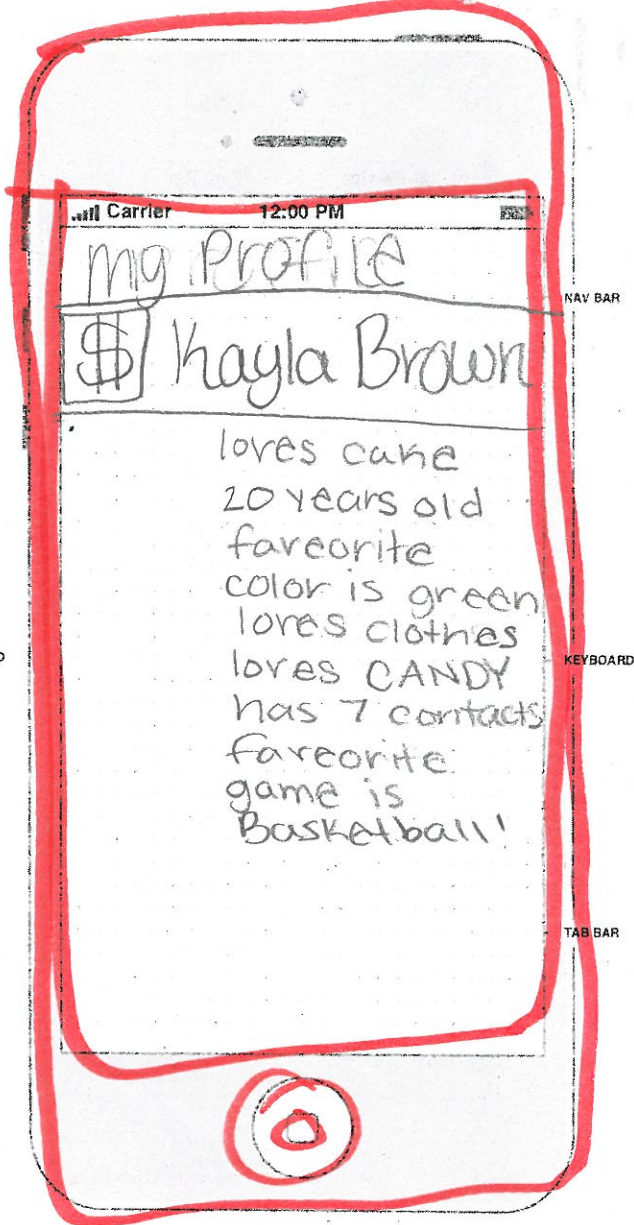 Carrier 12:00 PM
my Profile
NAV BAR
$ Kayla Brown
loves cake
20 years old
faveorite
color is green
loves clothes
loves CANDY
KEYBOARD
has 7 contacts
faveorite
game is
Basketball!
TAB BAR